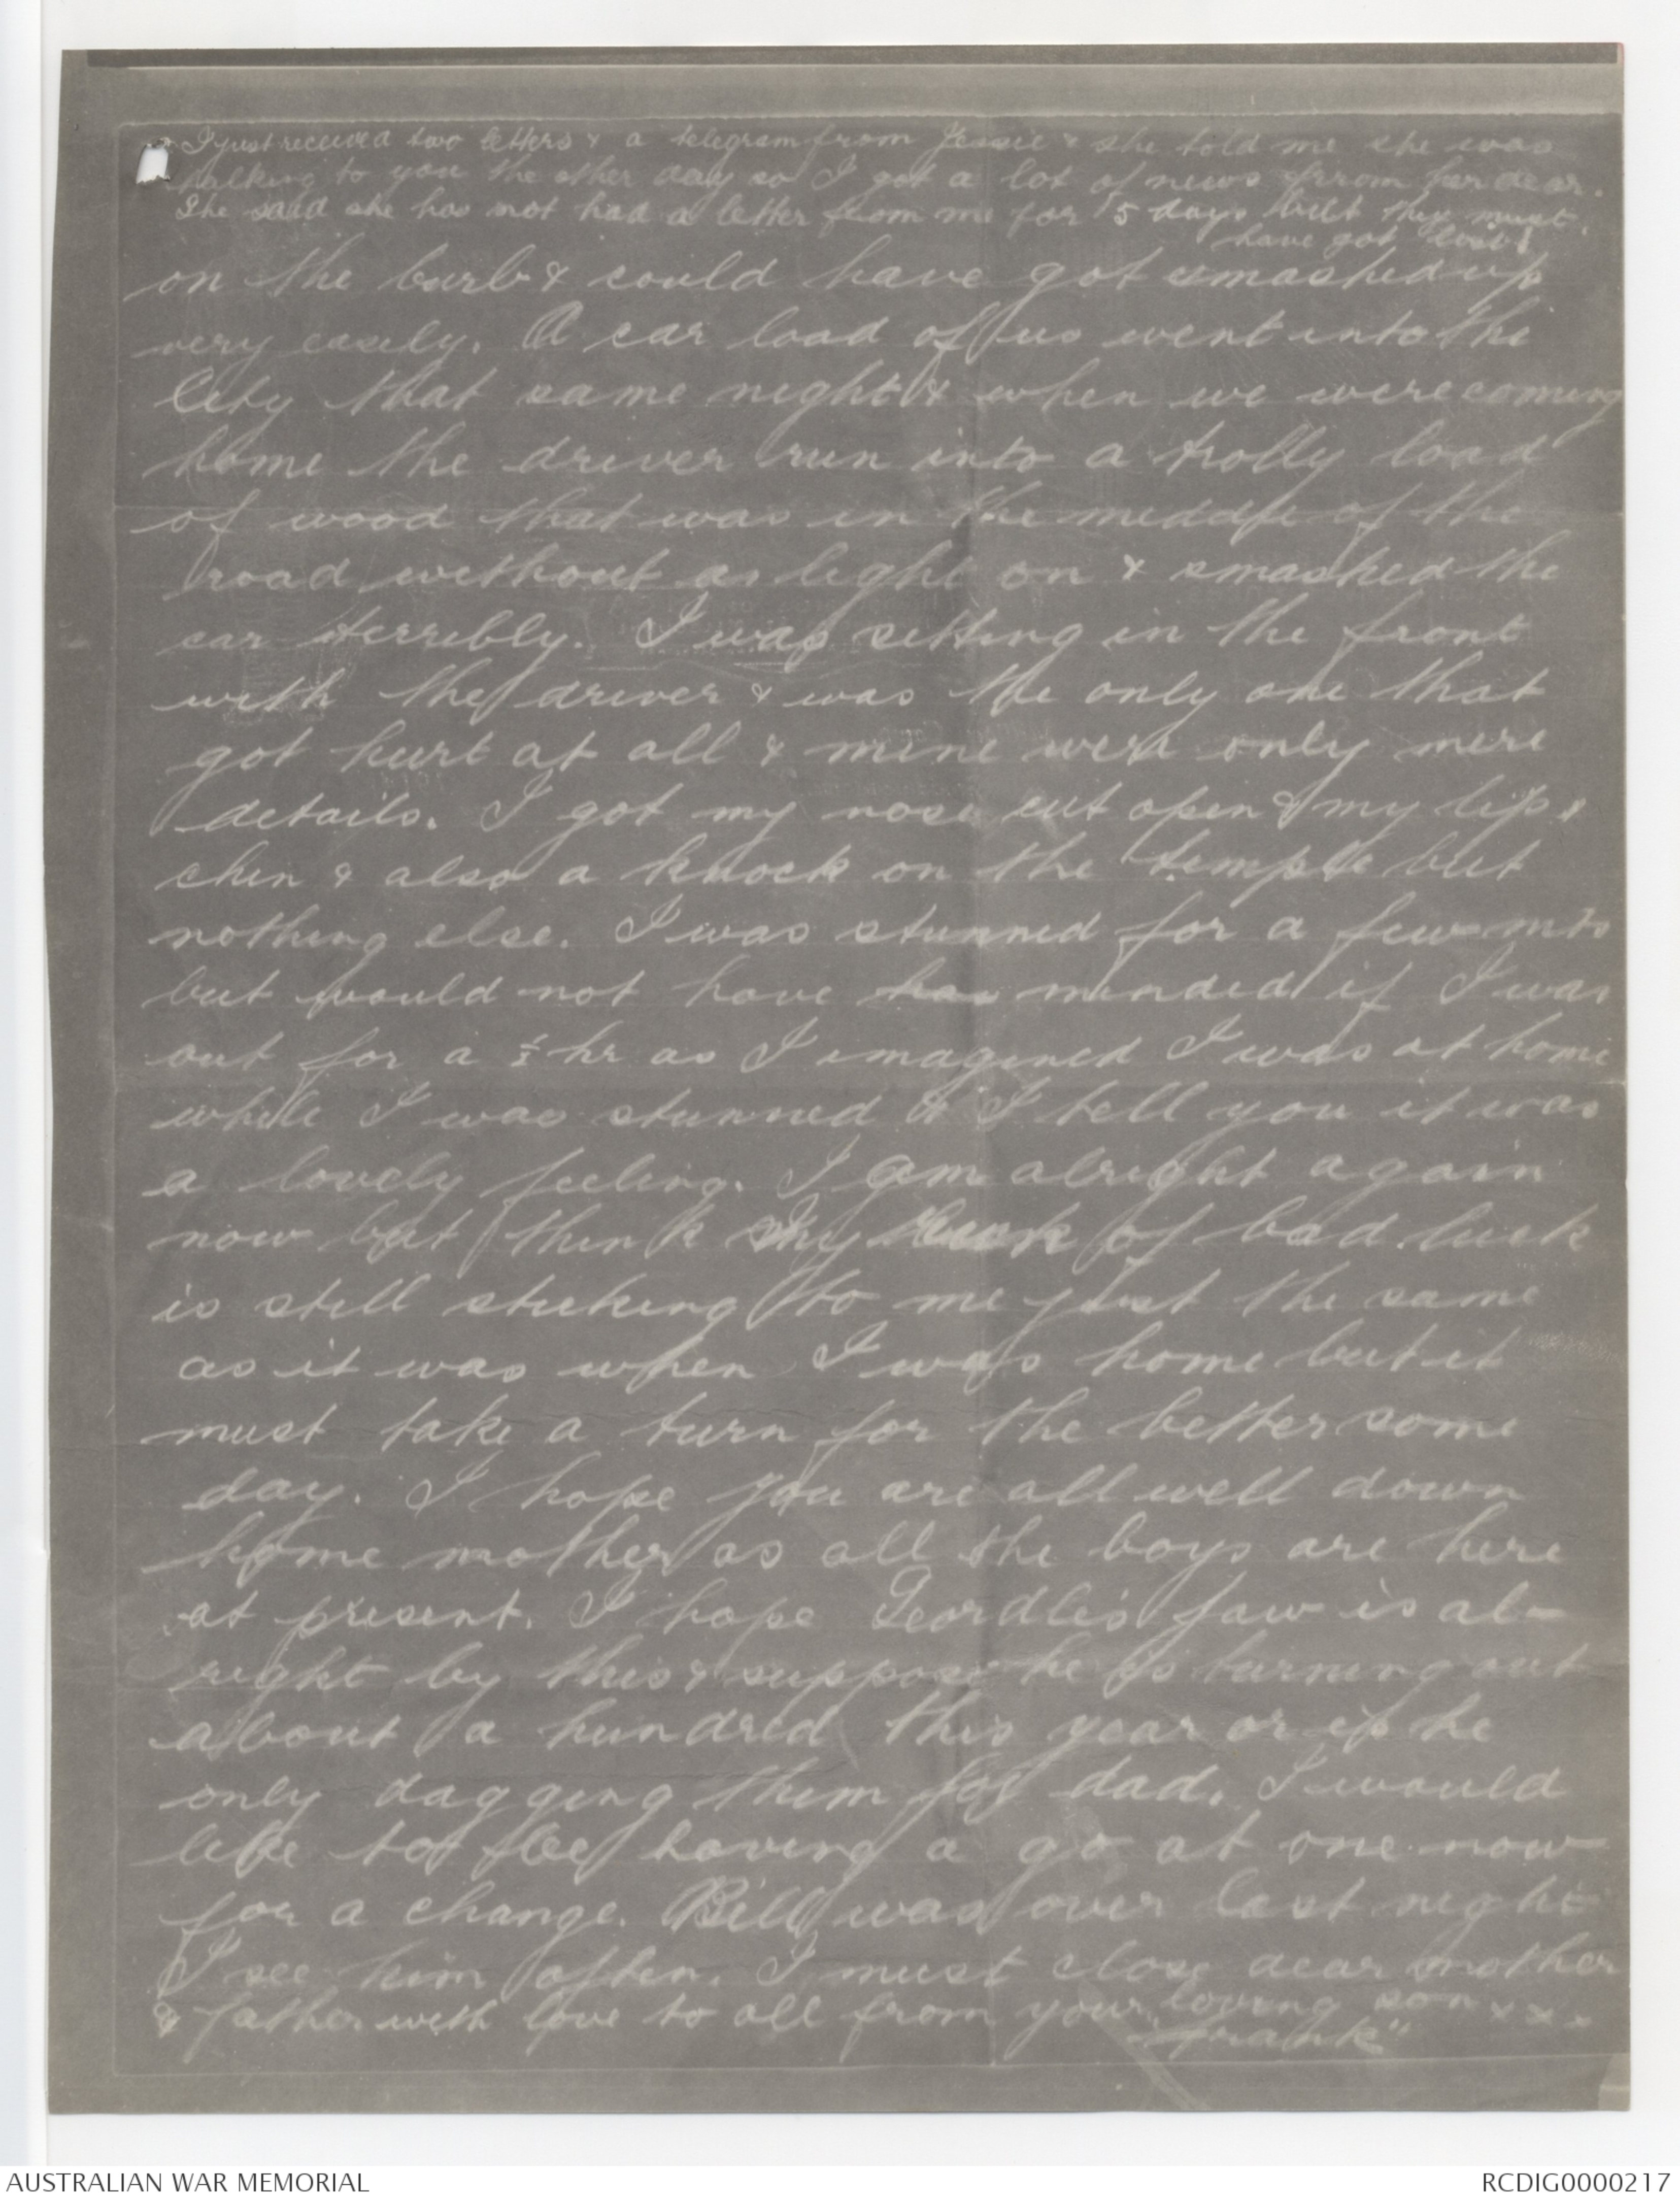 I just received two letters & a telegram from Jessie & she told me she was
talking to you the other day so I got a lot of news from her dear.
She said she has not had a letter from me for 15 days but they must
have got lost
on the curb & could have got smashed up
very easily. A car load of us went into the
City that same night & when we were coming
home the driver run into a trolly load
of wood that was in the middle of the
road without a light on & smashed the
car terribly. I was sitting in the front
with the driver & was the only one that
got hurt at all & mine were only mere
details. I got my nose cut open & my lip &
chin & also a knock on the temple but
nothing else. I was stunned for a few mts
but would not have minded if I was
out for a ½ hr as I imagined I was at home
while I was stunned & I tell you it was
a lovely feeling. I am alright again
now but think my of bad luck
is still sticking to me just the same
as it was when I was home but it
must take a turn for the better some
day. I hope you are all well down
home mother as all the boys are here
at present. I hope Geordie's jaw is al-
right by this & suppose he is turning out
about a hundred this year or is he
only dagging them for dad. I would
like to be having a go at one now
for a change. Bill was over last night
I see him often. I must close dear mother
& father with love to all from your loving son x x x
"Frank"
AUSTRALIAN WAR MEMORIAL
RCDIG0000217